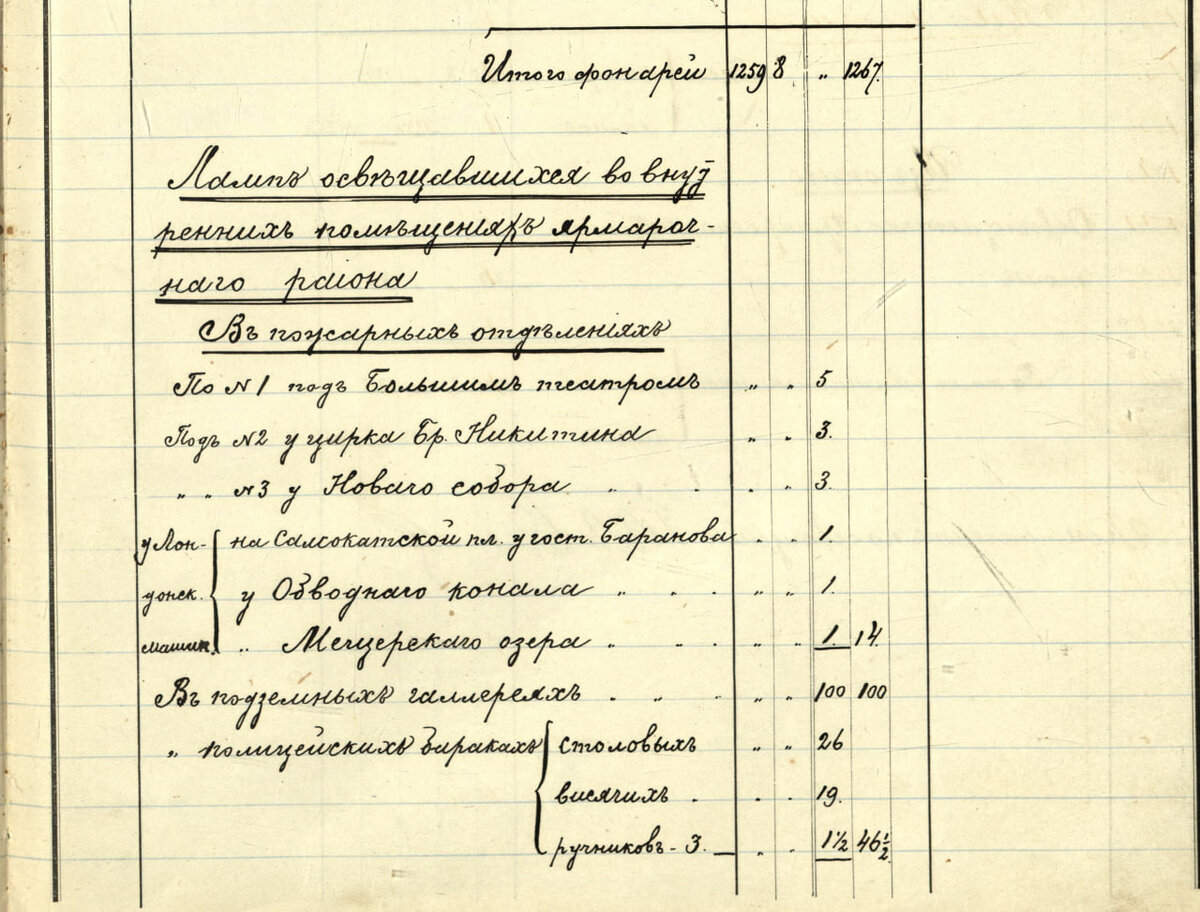 Итого фонарей 1259 8 „ 1267.
Лампъ освѣщавшихся во внут
реннихъ помѣщеніяхъ ярмароч-
наго раіона
Въ пожарныхъ отдѣленіяхъ
По №1 подъ Большимъ театромъ „ „ 5
Подъ №2 у цирка Бр. Никитина „ „ 3.
„ „ №3 у Новаго собора „ . . „ 3.
у Лон- на Самокатской пл. у гост. Баранова „ „ 1.
донск. у Обводнаго конала „ . . „ „ 1.
машин. „ Мещерскаго озера „ . . „ „ 1. 14.
Въ подземныхъ галлереяхъ . „ . „ „ 100 100
„ полицейскихъ баракахъ столовыхъ „ „ 26
висячихъ . . . 19.
ручниковъ - 3. — „ „ 1½ 46½